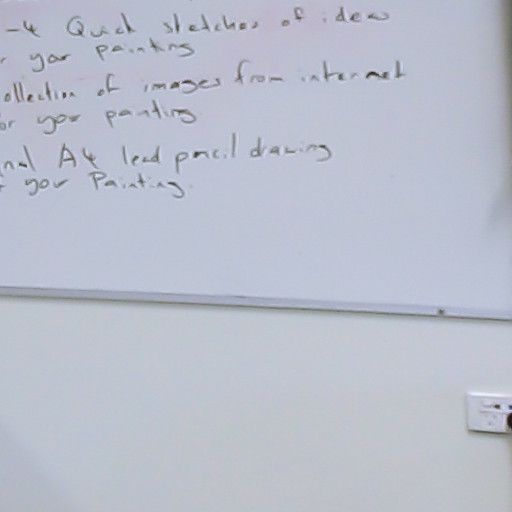 -4 Quick sketches of ideas
r your painting
ollection of images from internet
or your painting
nal A4 lead pencil drawing
r your Painting.